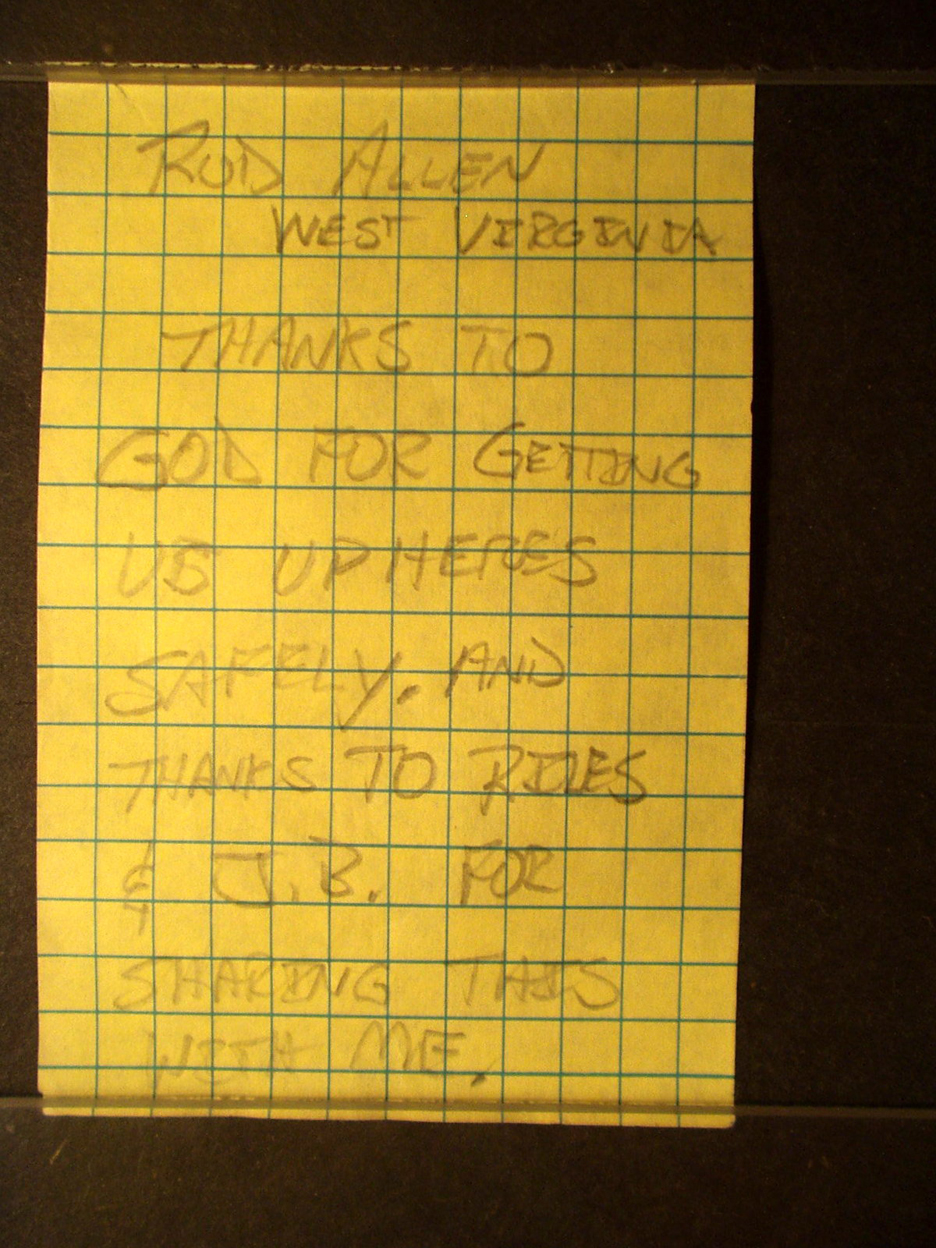 ROD ALLEN
WEST VIRGINIA
THANKS TO
GOD FOR GETTING
US UP HERES
SAFELY. AND
THANKS TO RILES
& J.B. FOR
SHARING THIS
WITH ME.